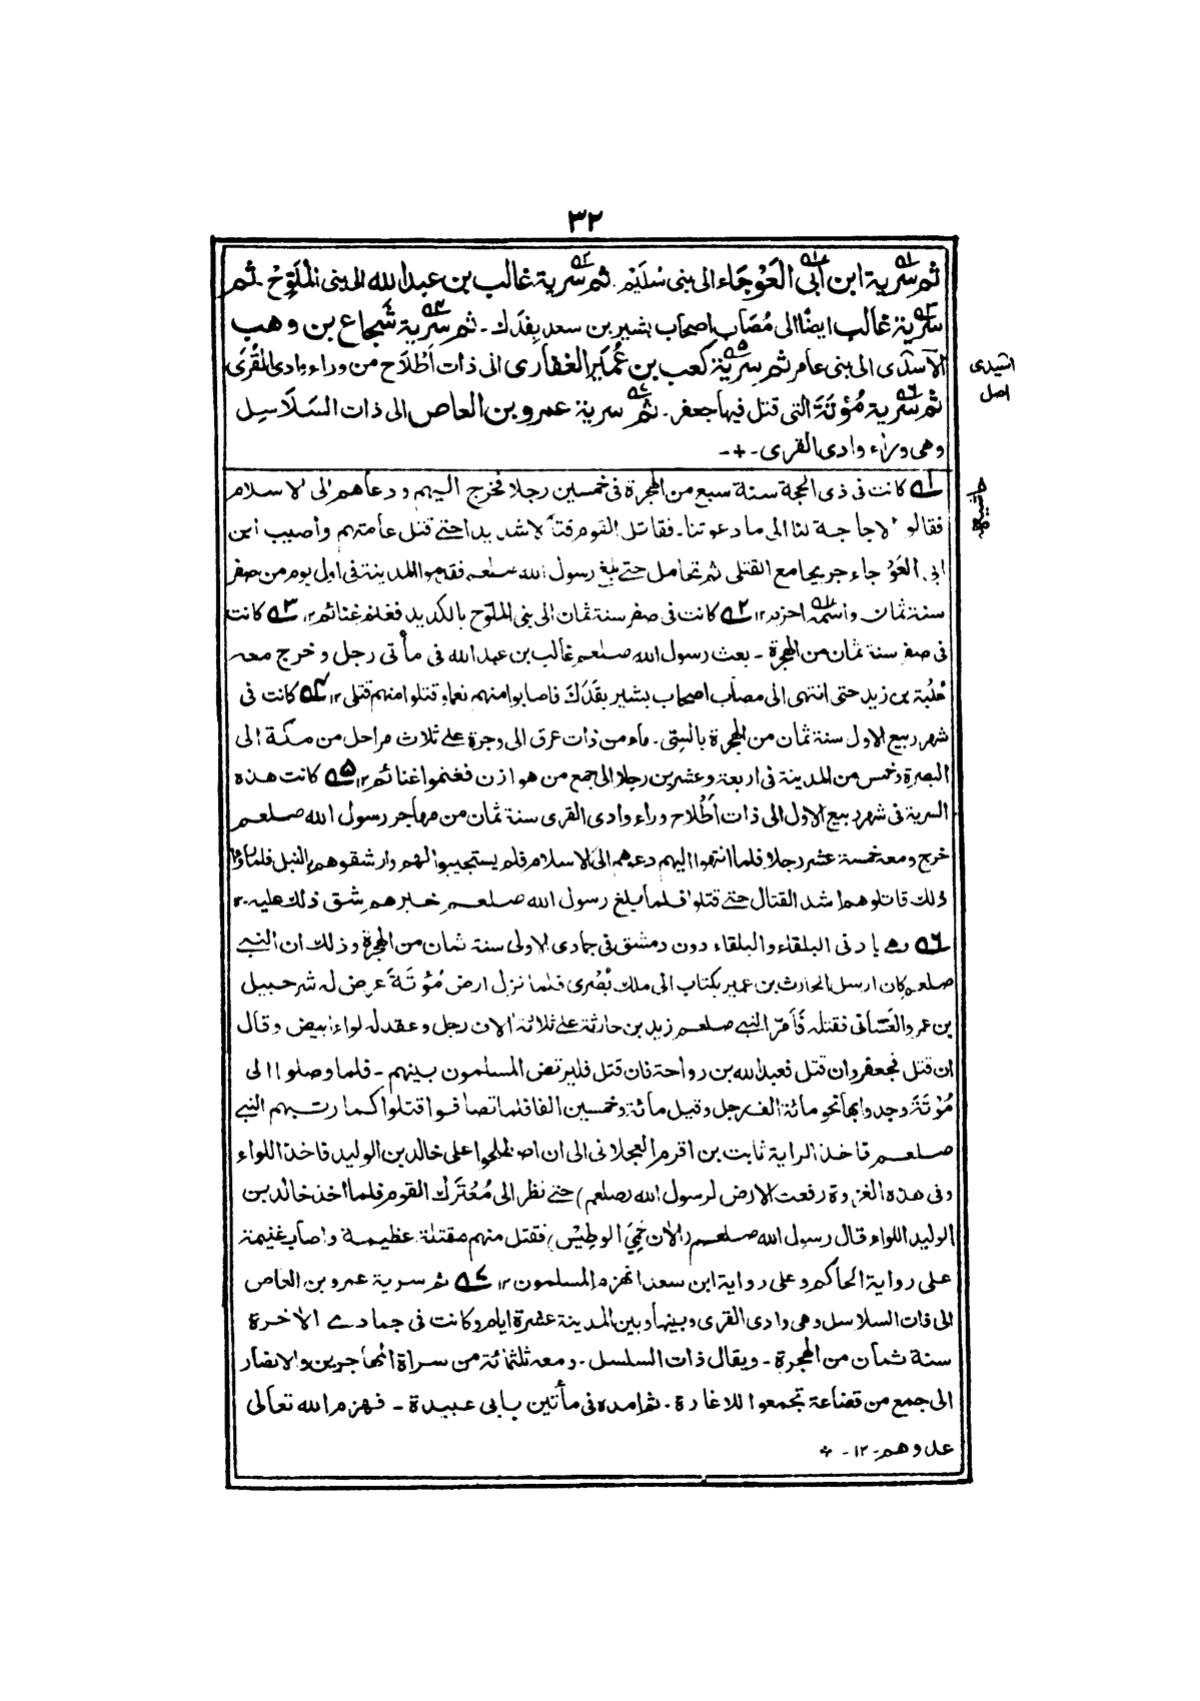 ٣٢
ثم سرية ابن أبى العَوْجَاء الى بنى سُلَيْم. ثم سرية غالب بن عبد الله الى بنى المُلَوِّحْ. ثم
سرية غالب ايضًا الى مُصَاب اصحاب بشير بن سعد بفَدَك۔ ثم سرية شجاع بن وهب
الآسَدى الى بنى عامر ثم سرية كعب بن عُمَير الغفارى الى ذات اَطْلَاح من وراء وادى القُرىَ
ثم سرية مُؤْتَةَ التى قتل فيها جعفر۔ ثم سرية عمرو بن العاص الى ذات السَلَاسِل
وهى وراء وادى القرى۔+۔
اسيدى
اصل
حاشيه
١ كانت فى ذى الحجة سنة سبع من الهجرة فى خمسين رجلا فخرج اليهم ودعاهم الى الاسلام
فقالو لاحاجة لنا الى ما دعوتنا۔ فقاتل القوم قتالا شديدا حتى قتل عامتهم وأصيب ابن
ابى العَوْجاء جريحا مع القتلى ثم تحامل حتى بلغ رسول الله صلعم فقدموا المدينة فى اول يوم من صفر
سنة ثمان واسمه احزم ١٢ ٢ كانت فى صفر سنة ثمان الى بنى الملوّح بالكديد فغنم غنائم ١٢ ٣ كانت
فى صفر سنة ثمان من الهجرة ۔ بعث رسول الله صلعم غالب بن عبد الله فى مأتى رجل وخرج معه
عُلْبة بن زيد حتى انتهى الى مصاب اصحاب بشير بفَدَك فاصابوا منهم نعما وقتلوا منهم قتلى ١٢ ٤ كانت فى
شهر ربيع الاول سنة ثمان من الهجرة بالسِّى۔ ماء من ذات عرق الى وجرة على ثلاث مراحل من مكة الى
البصرة وخمس من المدينة فى اربعة وعشرين رجلا الى جمع من هوازن فغنموا غنائم ١٢ ٥ كانت هذه
السرية فى شهر ربيع الاول الى ذات اَطْلاح وراء وادى القرى سنة ثمان من مهاجر رسول الله صلعم
خرج ومعه خمسة عشر رجلا فلما انتهوا اليهم دعوهم الى الاسلام فلم يستجيبوا لهم وارشقوهم بالنبل فلما رأوا
ذلك قاتلوهم اشد القتال حتى قتلوا فلما بلغ رسول الله صلعم خبرهم شق ذلك عليه ١٢
٦ هى باد فى البلقاء والبلقاء دون دمشق فى جمادى الاولى سنة ثمان من الهجرة وذلك ان النبى
صلعم كان ارسل الحارث بن عمير بكتاب الى ملك بُصْرى فلما نزل ارض مُؤتَةَ عرض له شرحبيل
بن عمرو الغَسَّانى فقتله فَأَمَّر النبى صلعم زيد بن حارثة على ثلاثة الاف رجل وعقد له لواء ابيض وقال
ان قتل فجعفر وان قتل فعبد الله بن رواحة فان قتل فليرتض المسلمون بينهم ۔ فلما وصلوا الى
مُؤْتَةَ وجدوا بها نحو مائة الف رجل وقيل مائة وخمسين الفا فلما تصافوا اقتلوا كما رتبهم النبى
صلعم فاخذ الراية ثابت بن اقرم العجلانى الى ان اصطلحوا على خالد بن الوليد فاخذ اللواء
وفى هذه الغزوة رفعت الارض لرسول الله (صلعم) حتى نظر الى مُعْتَرَك القوم فلما اخذ خالد بن
الوليد اللواء قال رسول الله صلعم (الآن حَمِيَ الوطيس) فقتل منهم مقتلة عظيمة واصاب غنيمة
على رواية الحاكم وعلى رواية ابن سعد انهزم المسلمون ١٢ ٧ ثم سرية عمرو بن العاص
الى ذات السلاسل وهى وادى القرى وبينها وبين المدينة عشرة ايام وكانت فى جمادى الآخرة
سنة ثمان من الهجرة ۔ ويقال ذات السلسل ۔ ومعه ثلثمائة من سراة المهاجرين والانصار
الى جمع من قضاعة تجمعوا للاغارة۔ ثم امده فى مأتين بابى عبيدة ۔ فهزم الله تعالى
عدوهم۔ ١٢ ۔ +